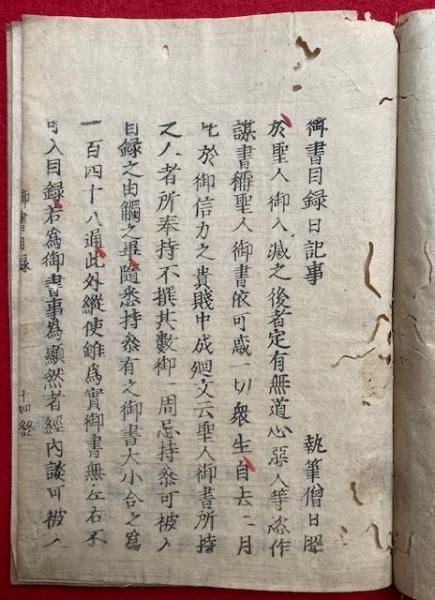 御書目録日記事 執筆僧日昭
於聖人御入滅之後者定有無道心惡人等恣作
謀書稱聖人御書依可惑一切衆生自去二月
比於御信力之貴賤中成廻文云聖人御書所持
之人者所奉持不撰其數御一周忌持參可被入
目録之由觸之畢隨悉持參有之御書大小合之爲
一百四十八通此外縱使雖爲實御書無左右不
可入目録若爲御書事爲顯然者經内談可被入
御書目録 十四終